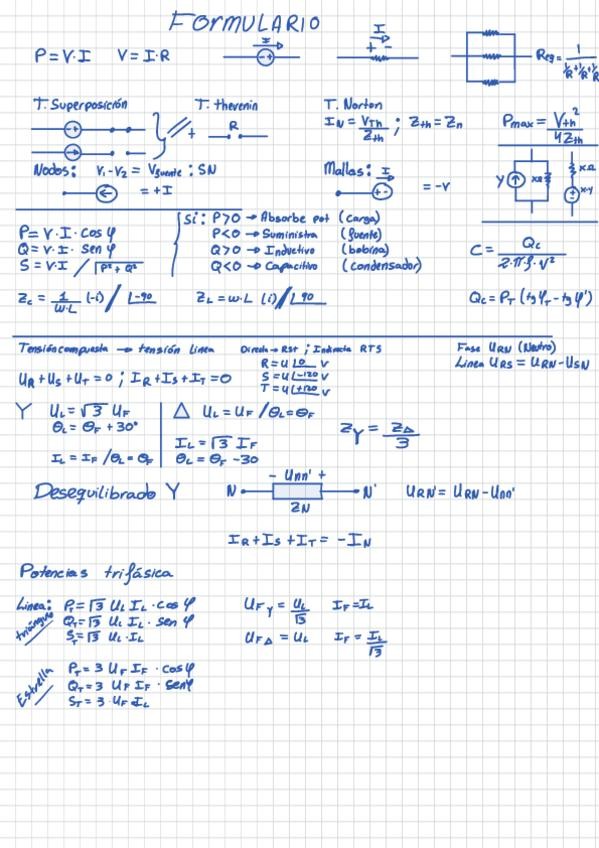 FORMULARIO
P = V·I V = I·R I I + - Req = 1 / (1/R + 1/R + 1/R)
T. Superposición T. thevenin T. Norton
+ R I_N = V_Th / Z_th ; Z_th = Z_n P_max = V_th² / 4Z_th
Nodos: V₁-V₂ = V_fuente ; SN Mallas: I
= +I = -V
P = V·I·cos φ
Q = V·I·sen φ
S = V·I / √P²+Q²
Si: P>0 → Absorbe pot (carga)
P<0 → Suministra (fuente)
Q>0 → Inductivo (bobina)
Q<0 → Capacitivo (condensador)
C = Qc / 2·π·f·V²
Zc = 1/ω·L (-i) / ∠-90 Z_L = ω·L (i) / ∠90 Qc = P_T (tg φ_T - tg φ')
Tensión compuesta → tensión linea Directa → RST ; Indirecta RTS Fase U_RN (Neutro)
Linea U_RS = U_RN - U_SN
U_R + U_S + U_T = 0 ; I_R + I_S + I_T = 0
R = U ∠0 V
S = U ∠-120 V
T = U ∠+120 V
Y U_L = √3 U_F
θ_L = θ_F + 30°
I_L = I_F / θ_L = θ_F
Δ U_L = U_F / θ_L = θ_F
I_L = √3 I_F
θ_L = θ_F - 30
Z_Y = Z_Δ / 3
Desequilibrado Y N - Unn' + N' U_RN' = U_RN - Unn'
Z_N
I_R + I_S + I_T = -I_N
Potencias trifásica
Linea: P_T = √3 U_L I_L · cos φ U_FY = U_L / √3 I_F = I_L
triángulo Q_T = √3 U_L I_L · sen φ
S_T = √3 U_L · I_L U_FΔ = U_L I_F = I_L / √3
Estrella P_T = 3 U_F I_F · cos φ
Q_T = 3 U_F I_F · sen φ
S_T = 3 · U_F I_L